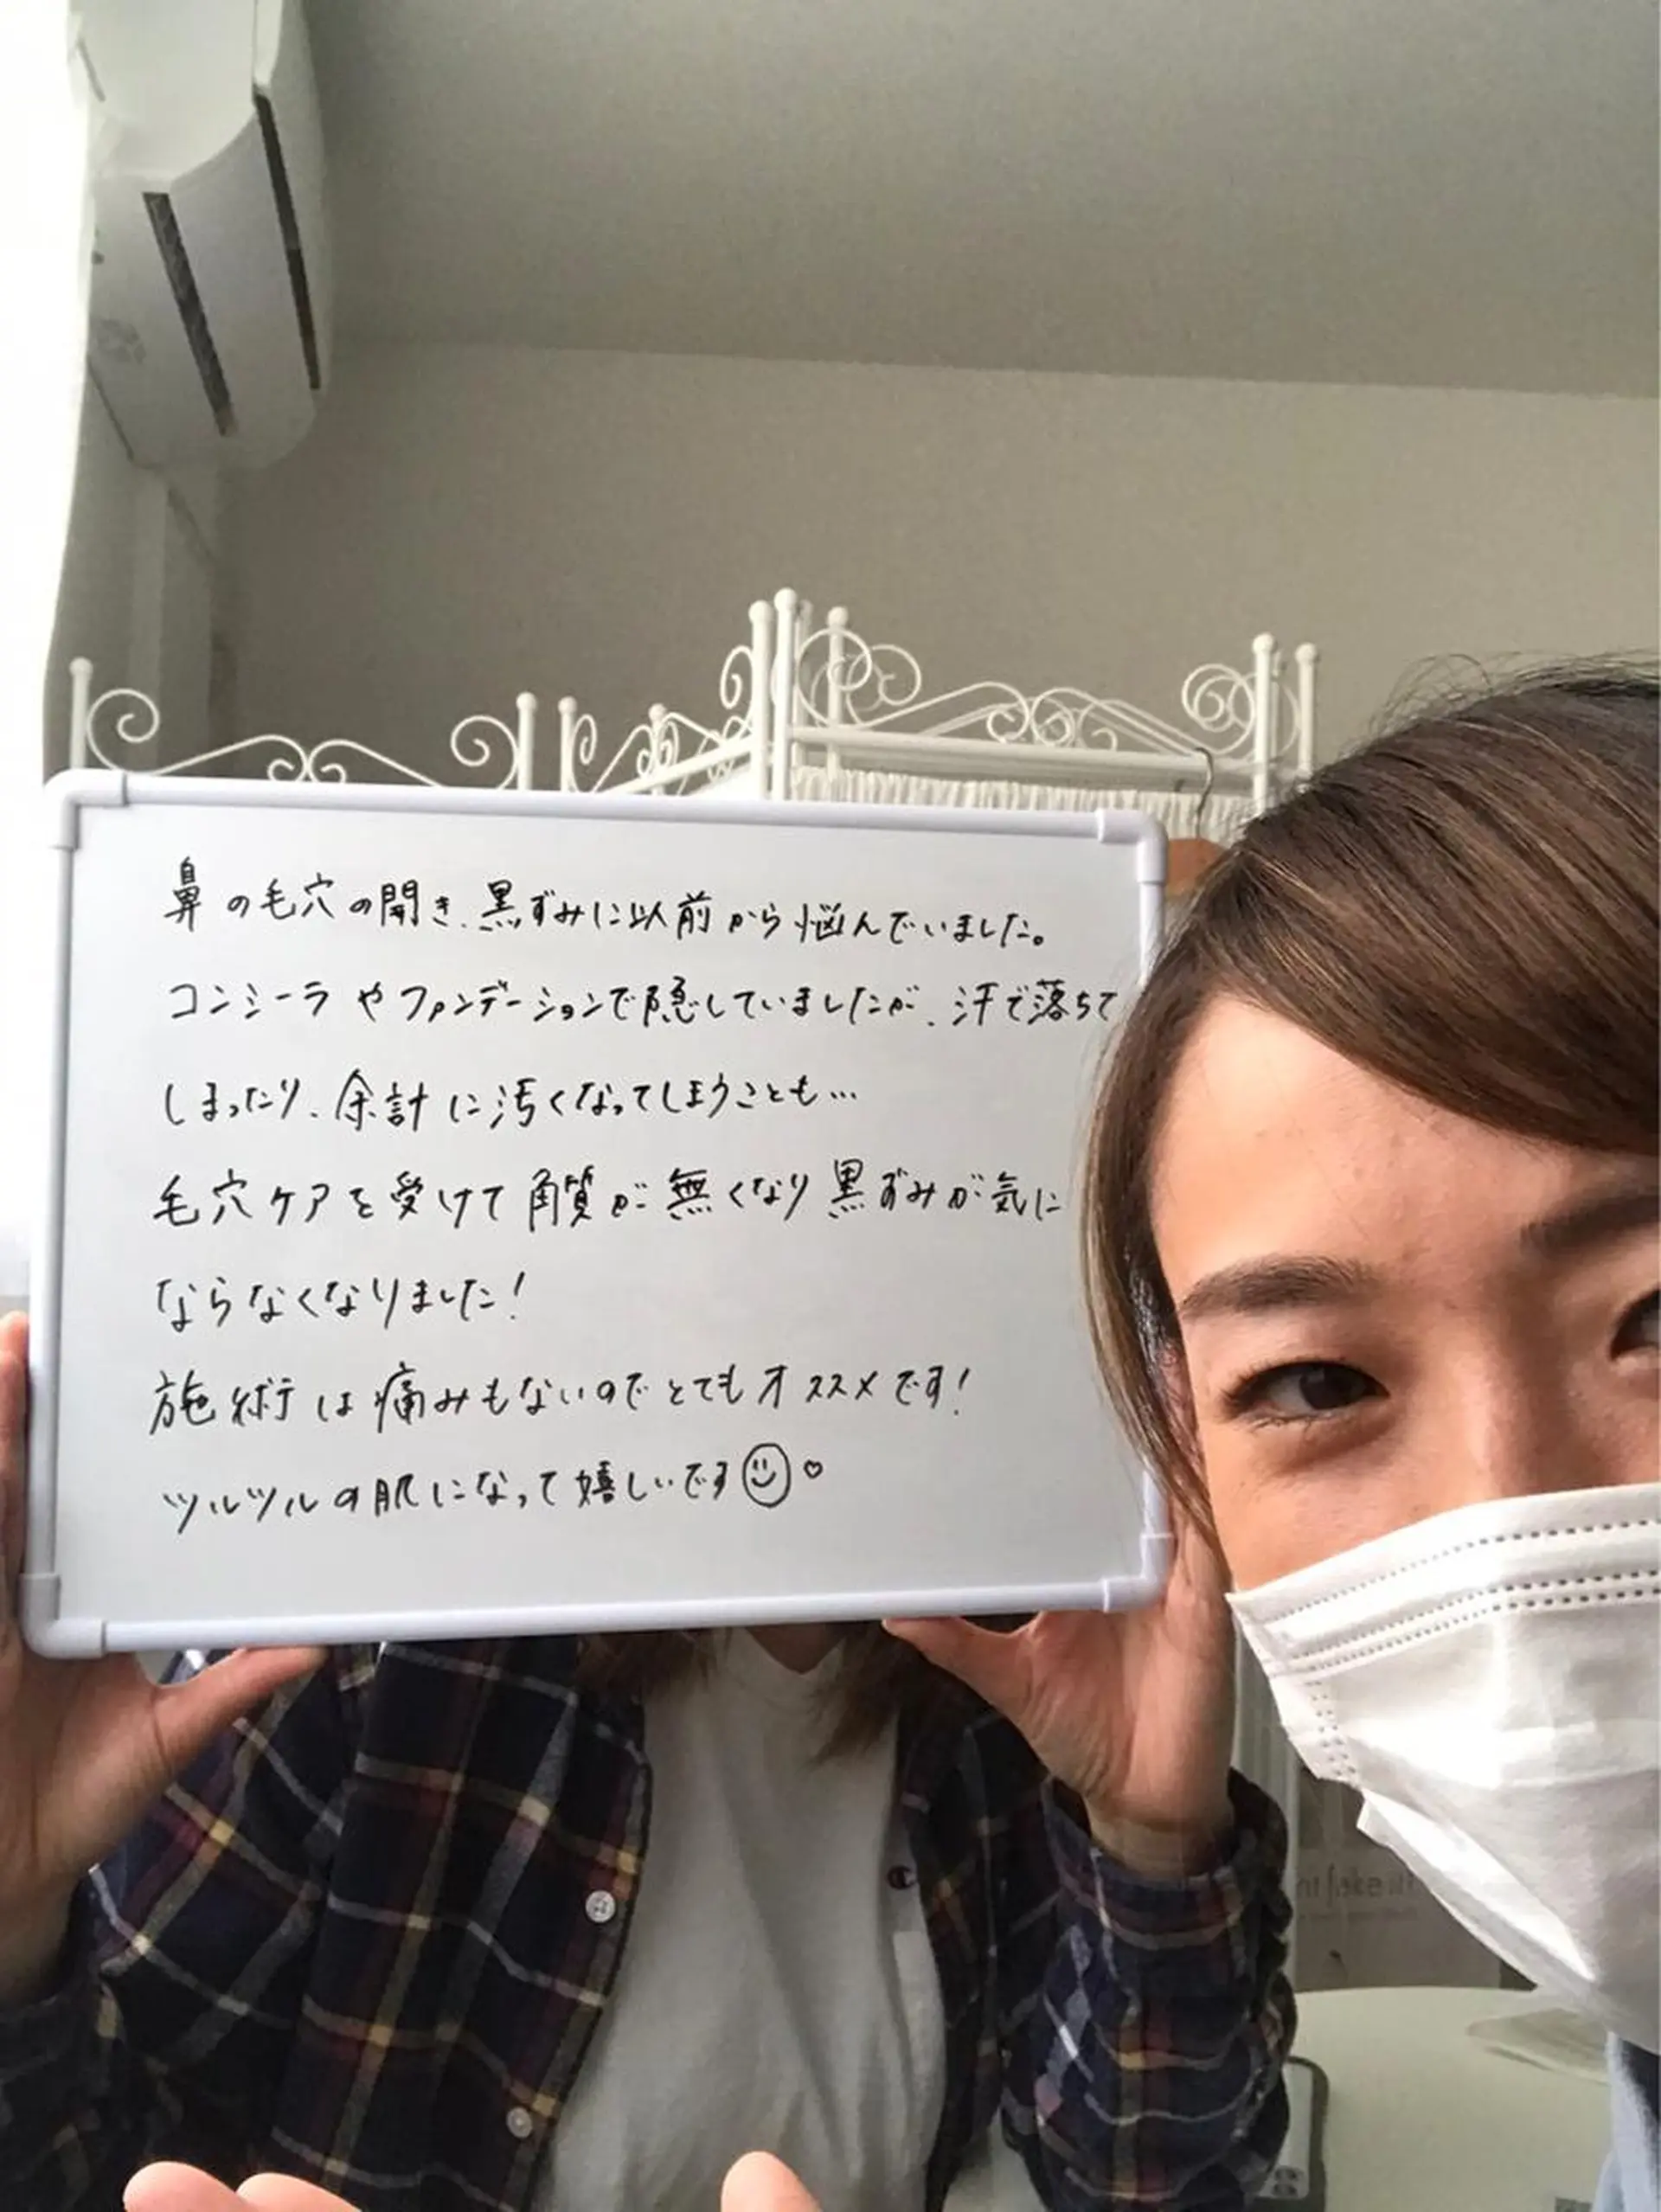 鼻の毛穴の開き、黒ずみに以前から悩んでいました。
コンシーラやファンデーションで隠していましたが、汗で落ちて
しまったり、余計に汚くなってしまうことも…
毛穴ケアを受けて角質が無くなり黒ずみが気に
ならなくなりました!
施術は痛みもないのでとてもオススメです!
ツルツルの肌になって嬉しいです☺♡